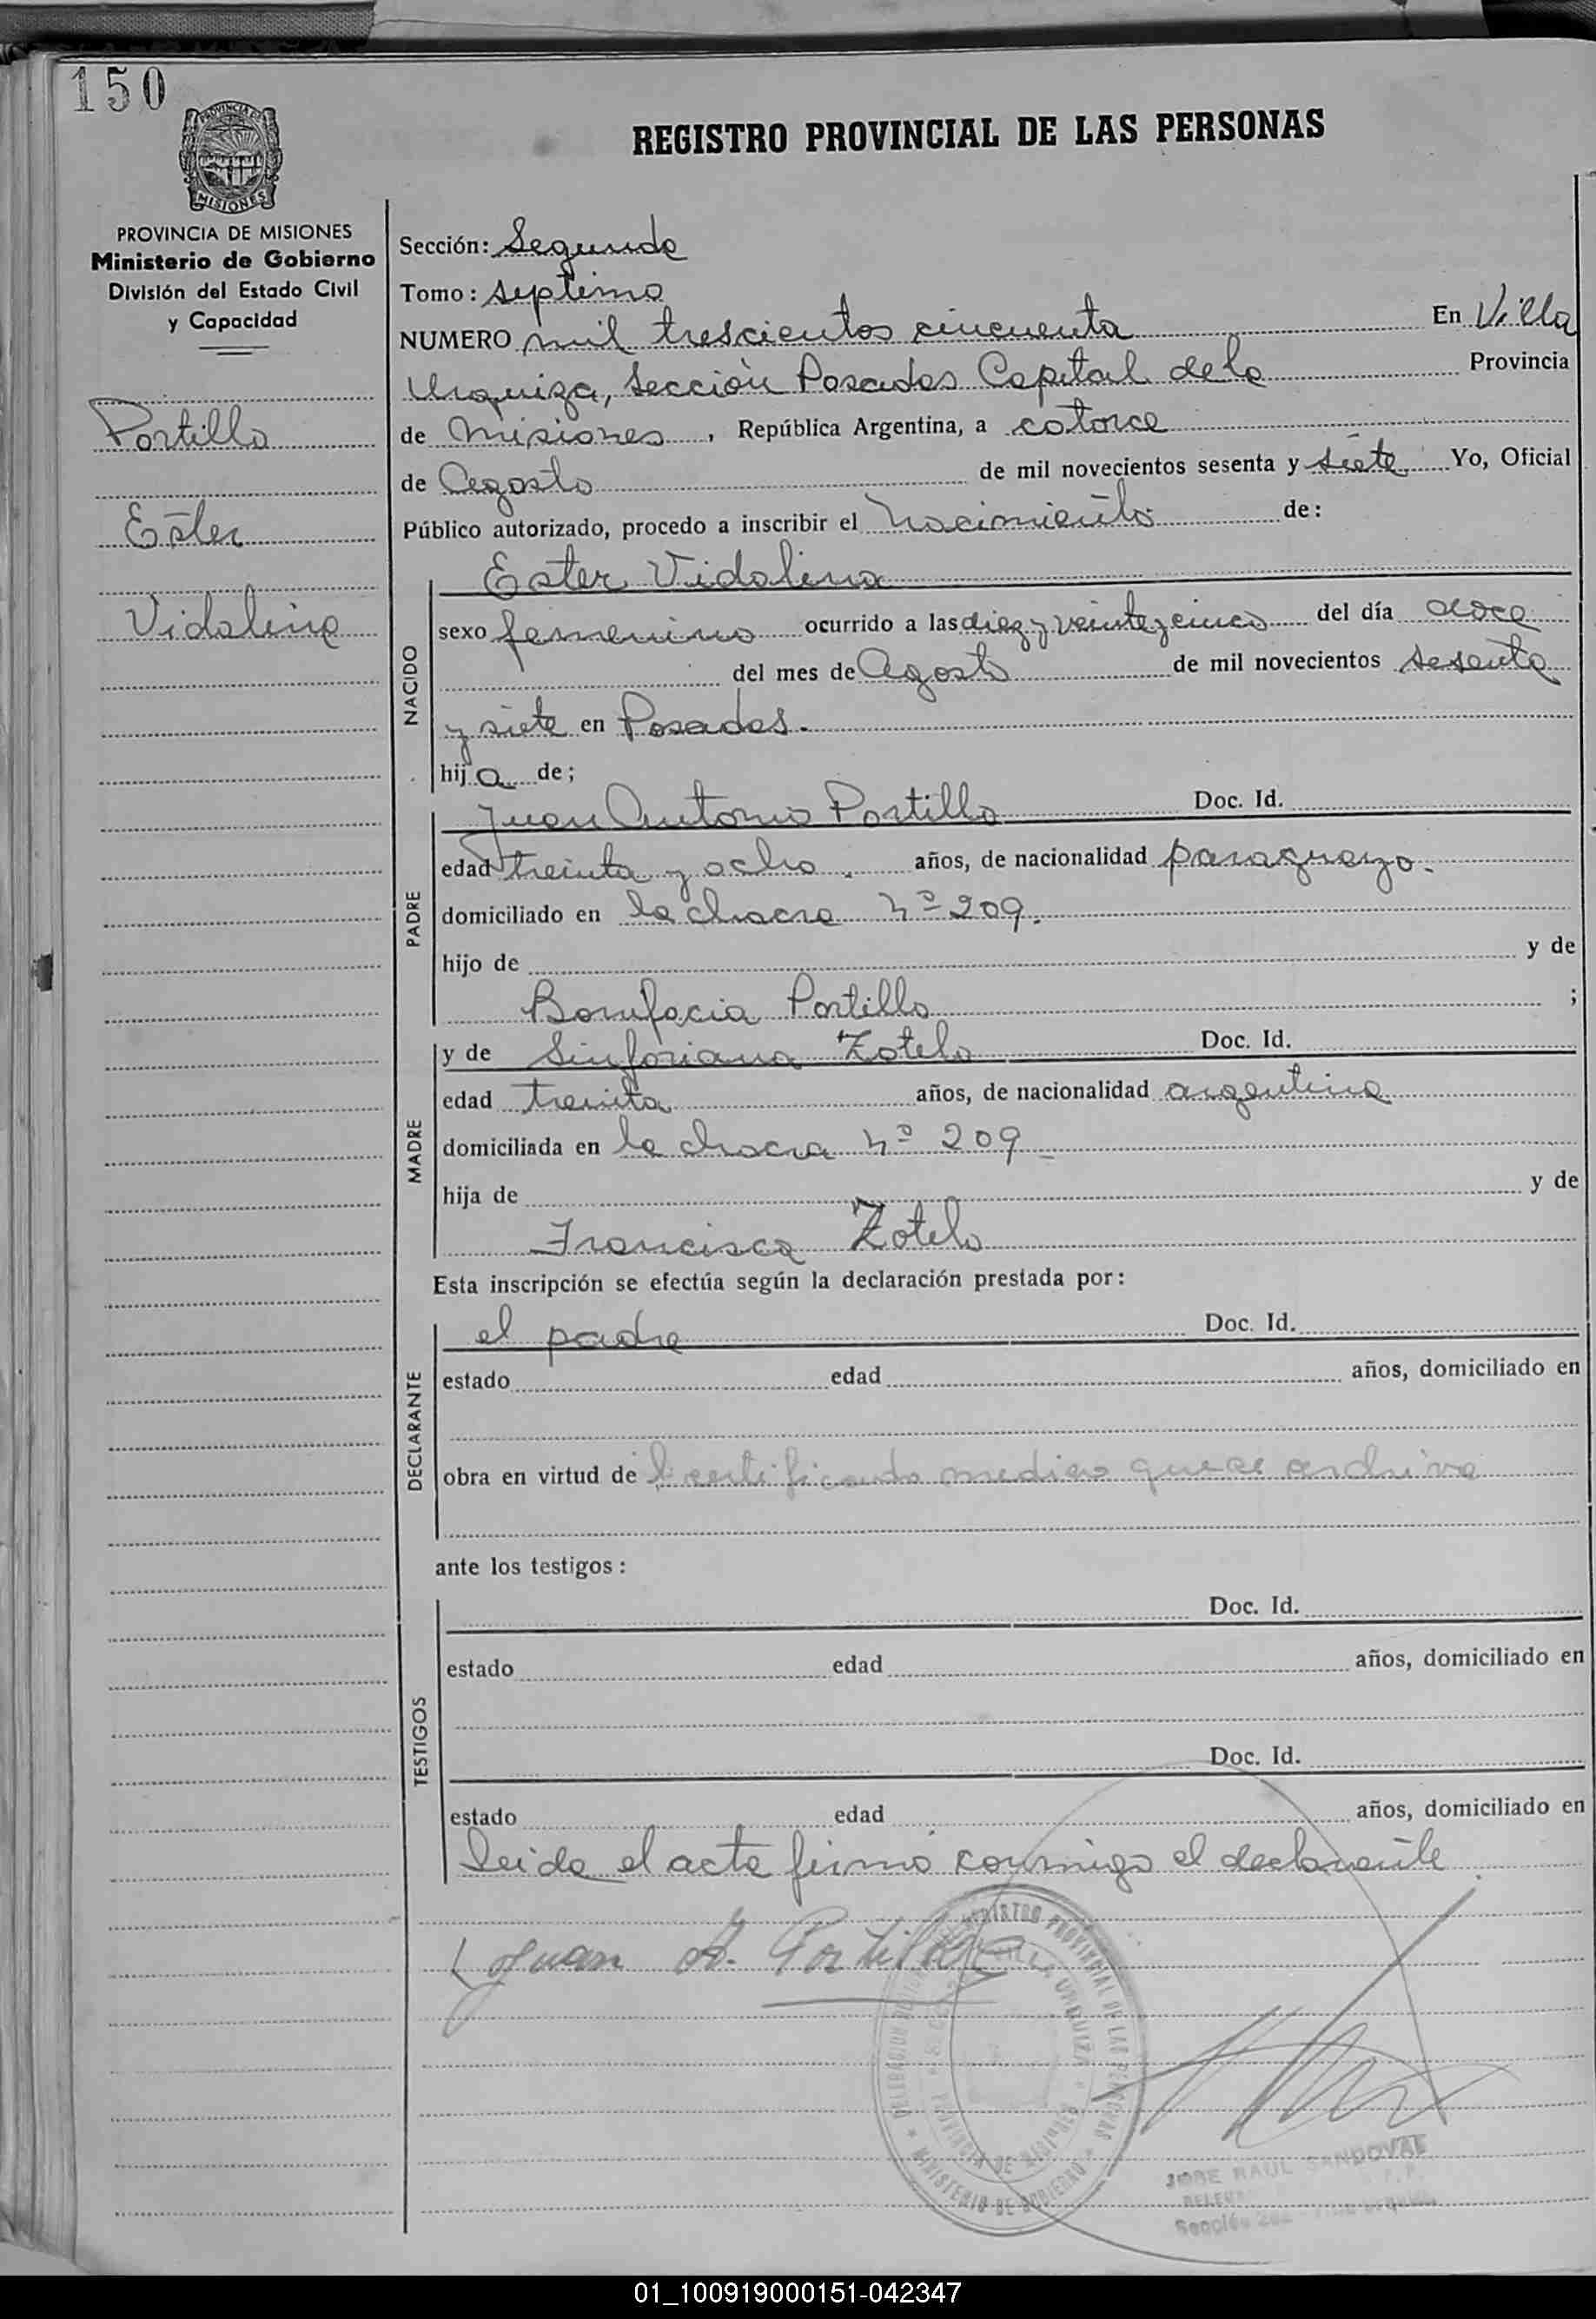 150
PROVINCIA DE
MISIONES
REGISTRO PROVINCIAL DE LAS PERSONAS
PROVINCIA DE MISIONES
Ministerio de Gobierno
División del Estado Civil
y Capacidad
Portillo
Ester
Vidalina
Sección: Segunda
Tomo: septimo
NUMERO mil trescientos cincuenta En Villa
Urquiza, Sección Posadas Capital de la Provincia
de Misiones, República Argentina, a catorce
de Agosto de mil novecientos sesenta y siete. Yo, Oficial
Público autorizado, procedo a inscribir el Nacimiento de:
NACIDO
Ester Vidalina
sexo femenino ocurrido a las diez y veinte y cinco del día doce
del mes de Agosto de mil novecientos sesenta
y siete en Posadas.
hija de;
PADRE
Juan Antonio Portillo Doc. Id.
edad treinta y ocho. años, de nacionalidad paraguayo.
domiciliado en la chacra nº 209.
hijo de y de
Bonifacia Portillo ;
MADRE
y de Sinforiana Zotelo Doc. Id.
edad treinta años, de nacionalidad argentina
domiciliada en la chacra nº 209
hija de y de
Francisca Zotelo
Esta inscripción se efectúa según la declaración prestada por:
DECLARANTE
el padre Doc. Id.
estado edad años, domiciliado en
obra en virtud de certificado medico que se archiva
ante los testigos:
TESTIGOS
Doc. Id.
estado edad años, domiciliado en
Doc. Id.
estado edad años, domiciliado en
Leida el acta firmó conmigo el declarante
Juan A. Portillo
REGISTRO PROVINCIAL DE LAS PERSONAS
VILLA URQUIZA
PROVINCIA DE MISIONES
MINISTERIO DE GOBIERNO
JORE RAUL SANDOVAL
Sección
01_100919000151-042347